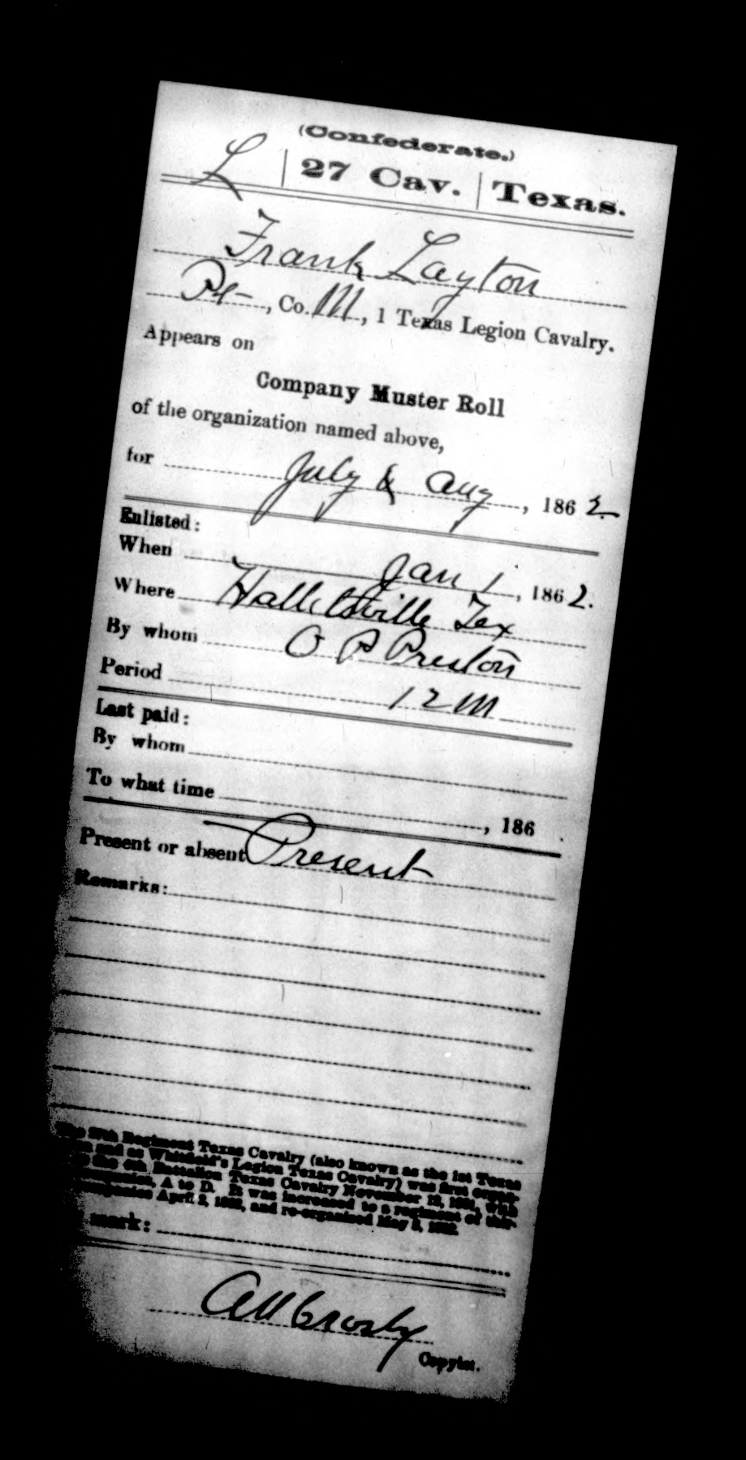 (Confederate.)
L | 27 Cav. | Texas.
Frank Layton
Pt, Co. M, 1 Texas Legion Cavalry.
Appears on
Company Muster Roll
of the organization named above,
for July & Aug, 1862.
Enlisted:
When Jan 1, 1862.
Where Hallettsville Tex
By whom O P Preston
Period 12 M
Last paid:
By whom
To what time , 186 .
Present or absent Present
Remarks:
27th Regiment Texas Cavalry (also known as the 1st Texas
and as Whitfield's Legion Texas Cavalry) was first organ-
the 4th Battalion Texas Cavalry November 13, 1861, with
companies, A to D. It was increased to a regiment of thir-
companies April 2, 1862, and re-organized May 8, 1862.
mark:
Crosby
Copyist.